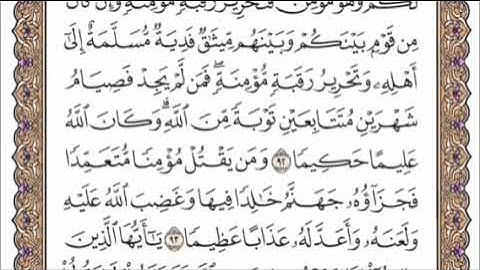 لَّكُمْ وَهُوَ مُؤْمِنٌ فَتَحْرِيرُ رَقَبَةٍ مُّؤْمِنَةٍ وَإِن كَانَ
مِن قَوْمٍ بَيْنَكُمْ وَبَيْنَهُم مِّيثَٰقٌ فَدِيَةٌ مُّسَلَّمَةٌ إِلَىٰٓ
أَهْلِهِۦ وَتَحْرِيرُ رَقَبَةٍ مُّؤْمِنَةٍ ۖ فَمَن لَّمْ يَجِدْ فَصِيَامُ
شَهْرَيْنِ مُتَتَابِعَيْنِ تَوْبَةً مِّنَ ٱللَّهِ ۗ وَكَانَ ٱللَّهُ
عَلِيمًا حَكِيمًا ٩٢ وَمَن يَقْتُلْ مُؤْمِنًا مُّتَعَمِّدًا
فَجَزَآؤُهُۥ جَهَنَّمُ خَٰلِدًا فِيهَا وَغَضِبَ ٱللَّهُ عَلَيْهِ
وَلَعَنَهُۥ وَأَعَدَّ لَهُۥ عَذَابًا عَظِيمًا ٩٣ يَٰٓأَيُّهَا ٱلَّذِينَ